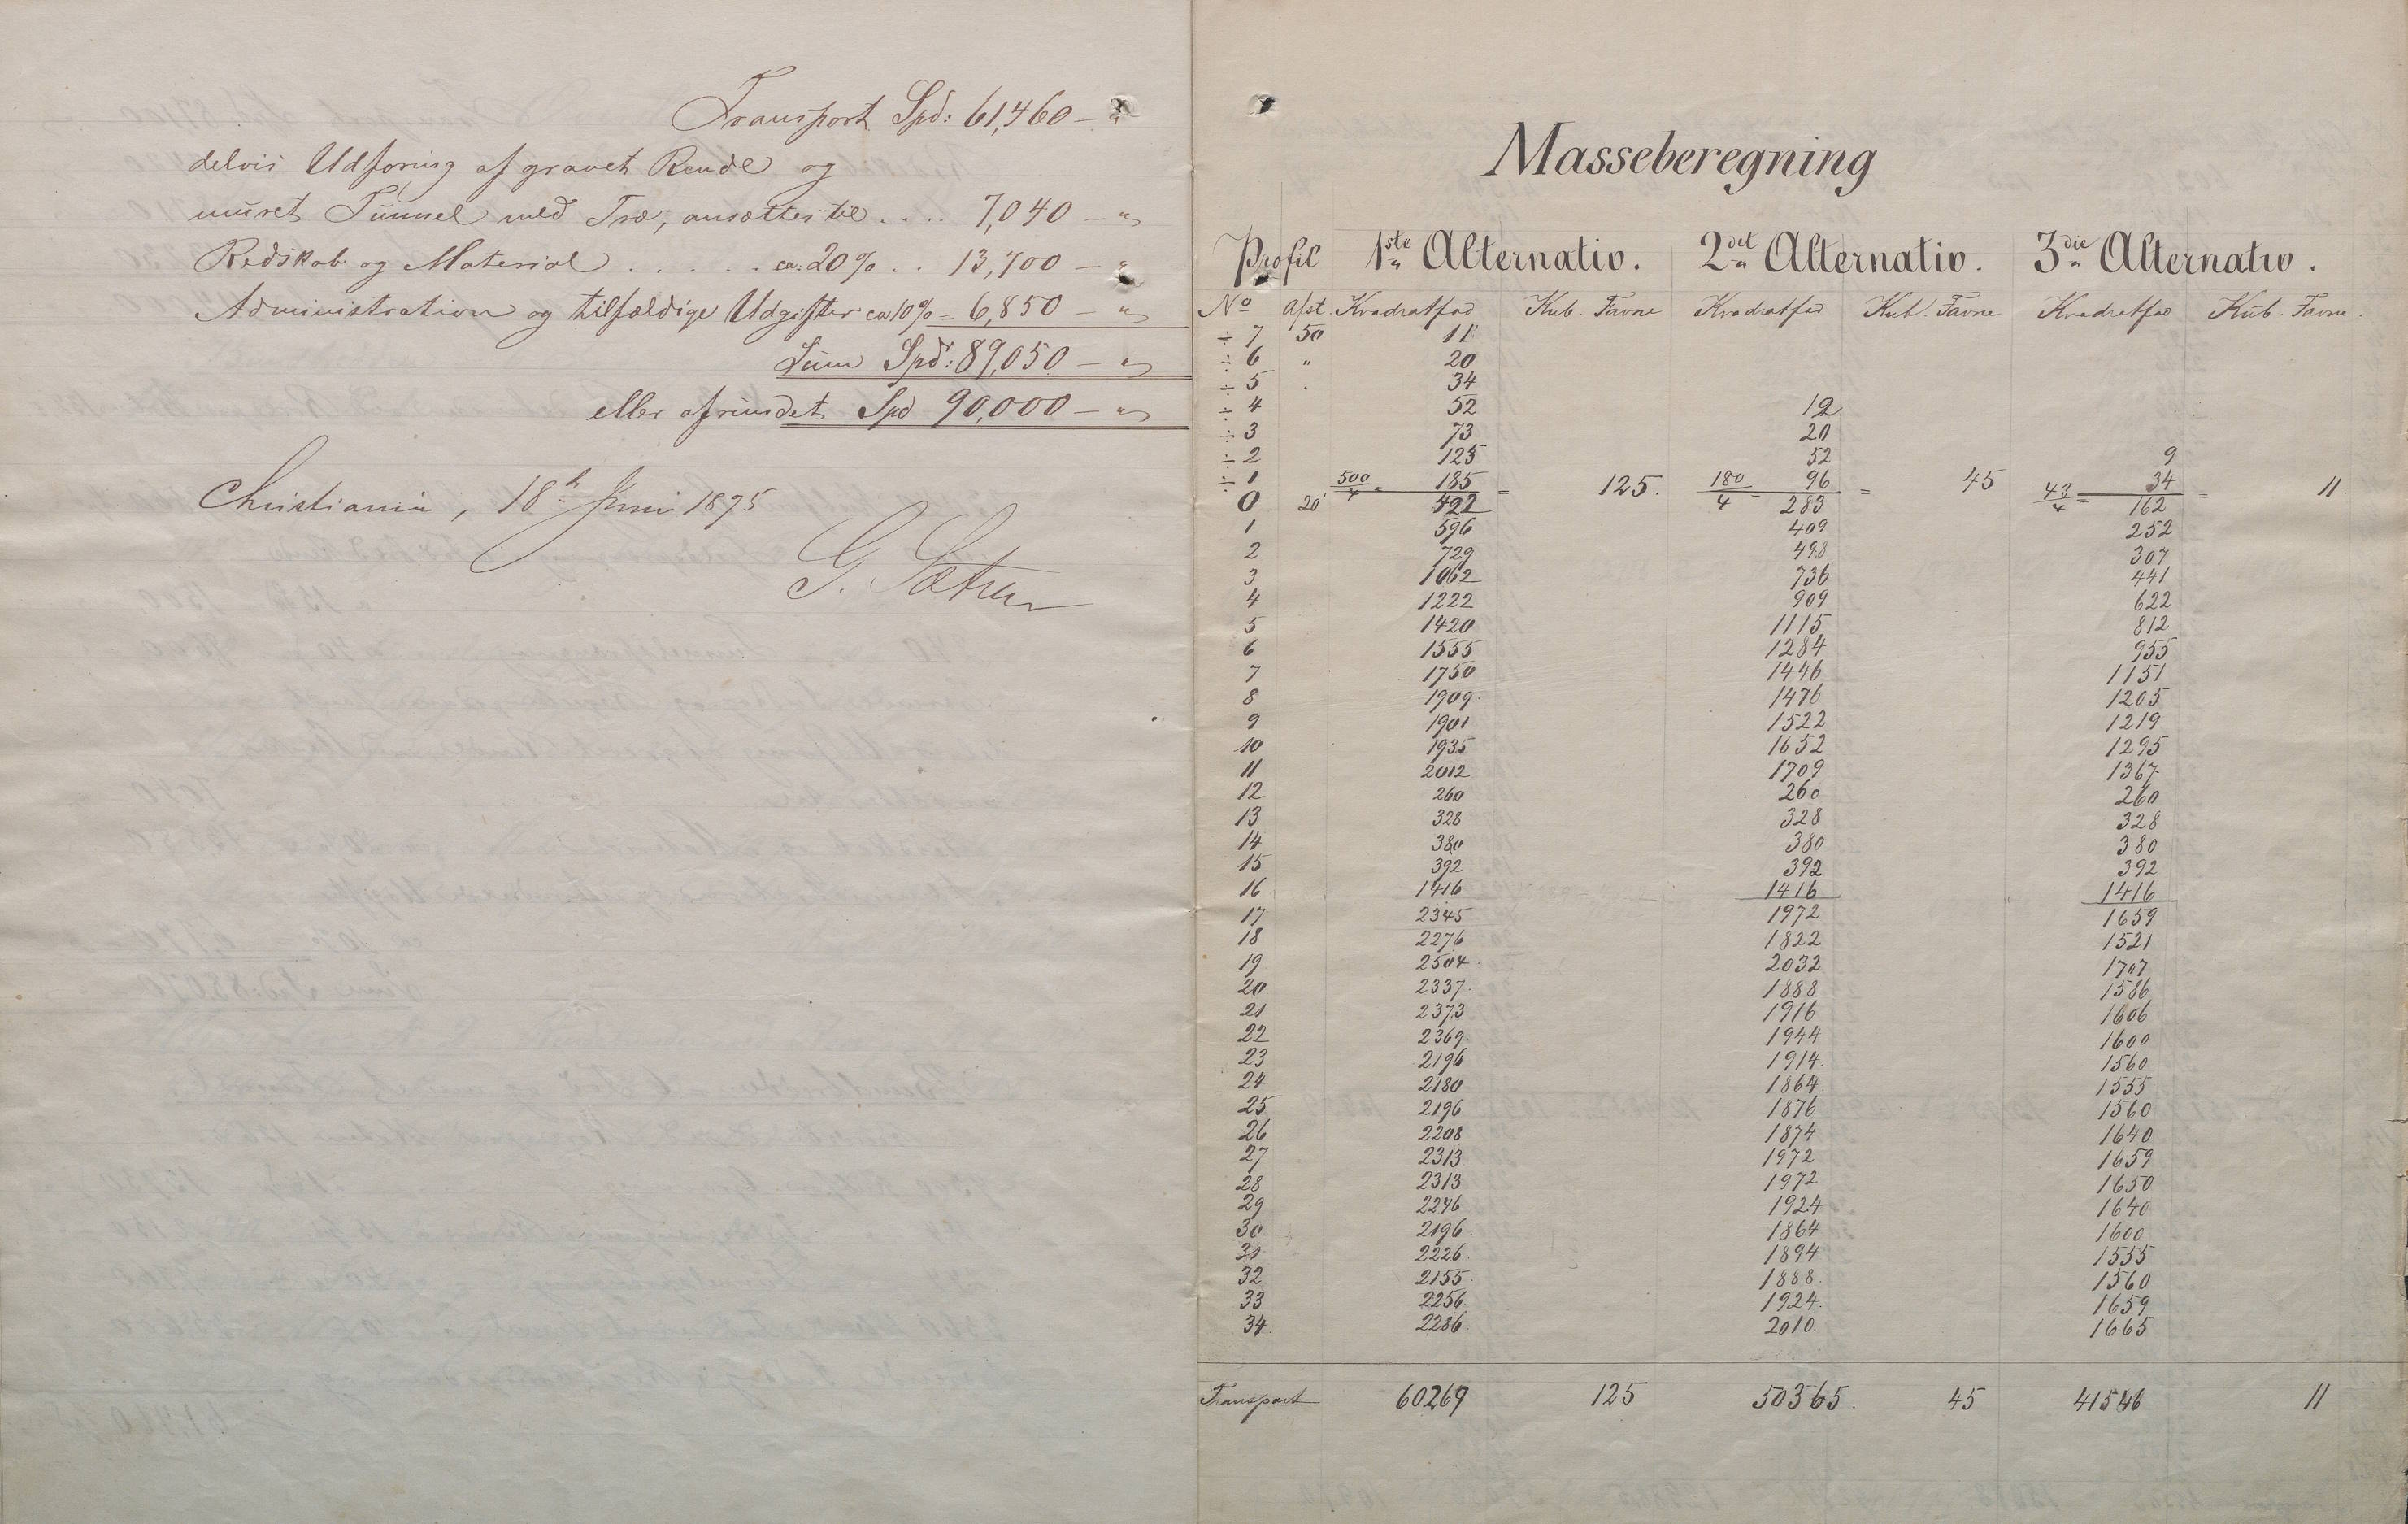 Transport Spd: 61,460 – "
delvis Udforing af gravet Rende og
muret Tunnel med Træ, ansættes til . . . . 7,040 – "
Redskab og Material . . . . . ca: 20% . . 13,700 – "
Administration og tilfældige Udgifter ca 10% = 6,850 – "
Sum Spd: 89,050 – "
eller afrundet Spd 90,000 – "
Christiania, 18de Juni 1875
G. Sætren
Masseberegning
Profil 1ste Alternativ. 2det Alternativ. 3die Alternativ.
No Afst. Kvadratfod Kub. Favne Kvadratfod Kub. Favne Kvadratfod Kub. Favne.
÷ 7 50 11
÷ 6 " 20
÷ 5 . 34
÷ 4 52 12
÷ 3 73 20
÷ 2 125 52 9
÷ 1 500/4 = 185 = 125. 180/4 = 96 = 45 43/4 = 34 = 11.
0 20' 492 283 162
1 596 409 252
2 729 498 307
3 1062 736 441
4 1222 909 622
5 1420 1115 812
6 1555 1284 955
7 1750 1446 1151
8 1909. 1476 1205
9 1901 1522 1219
10 1935 1652 1295
11 2012 1709 1367
12 260 260 260
13 328 328 328
14 380 380 380
15 392 392 392
16 1416 1416 1416
17 2345 1972 1659
18 2276 1822 1521
19 2504 2032 1707
20 2337. 1888 1586
21 2373 1916 1606
22 2369 1944 1600
23 2196 1914. 1560
24 2180 1864 1555
25 2196 1876 1560
26 2208 1874 1640
27 2313 1972 1659
28 2313 1972 1650
29 2246 1924 1640
30 2196. 1864 1600
31 2226. 1894 1555
32 2155. 1888. 1560
33 2256. 1924. 1659
34 2286. 2010. 1665
Transport 60269 125 50365. 45 41546 11